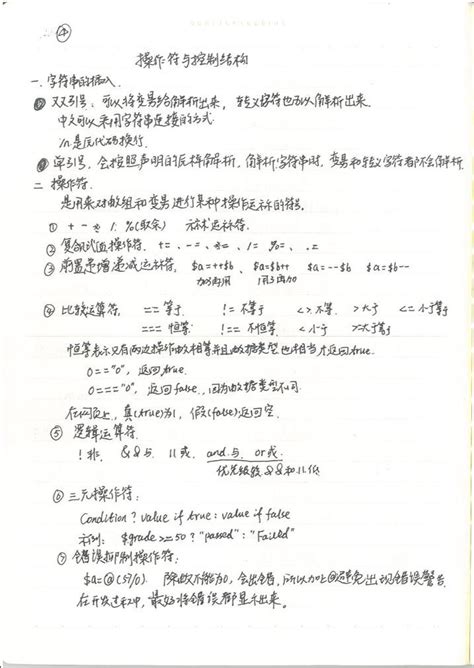 ④
操作符与控制结构
一、字符串的插入
① 双引号：可以将变量给解析出来，转义字符也可以解析出来.
中文可以采用字符串连接的方式
\n是底代码换行.
② 单引号，会按照声明的原样解析，解析字符串时，变量和转义字符都不会解析.
二 操作符.
是用来对数组和变量进行某种操作运算的符号.
① + - * / %(取余) 算术运算符.
② 复合赋值操作符. += 、-= 、*= 、/= %= 、.=
③ 前置递增递减运算符. $a=++$b 、$a=$b++ $a=--$b $a=$b--
加后再用 用了再加
④ 比较运算符. == 等于 != 不等 <> 不等. > 大于 <= 小于等于
=== 恒等 !== 不恒等. < 小于 >= 大于等于.
恒等表示只有两边操作数相等并且数据类型也相当才返回true.
0=="0", 返回true.
0==="0", 返回false., 因为数据类型不同.
在网页上，真(true)为1，假(false)返回空.
⑤ 逻辑运算符.
! 非. && 与 || 或. and.与. or或.
优先级较&&和||低
⑥ 三元操作符:
Condition ? value if true : value if false
示例: $grade >= 50 ? "passed" : "Failed"
⑦ 错误抑制操作符:
$a=@(57/0). 除数不能为0, 会出错, 所以加上@避免出现错误警告.
在开发过程中, 最好将错误都显示出来.